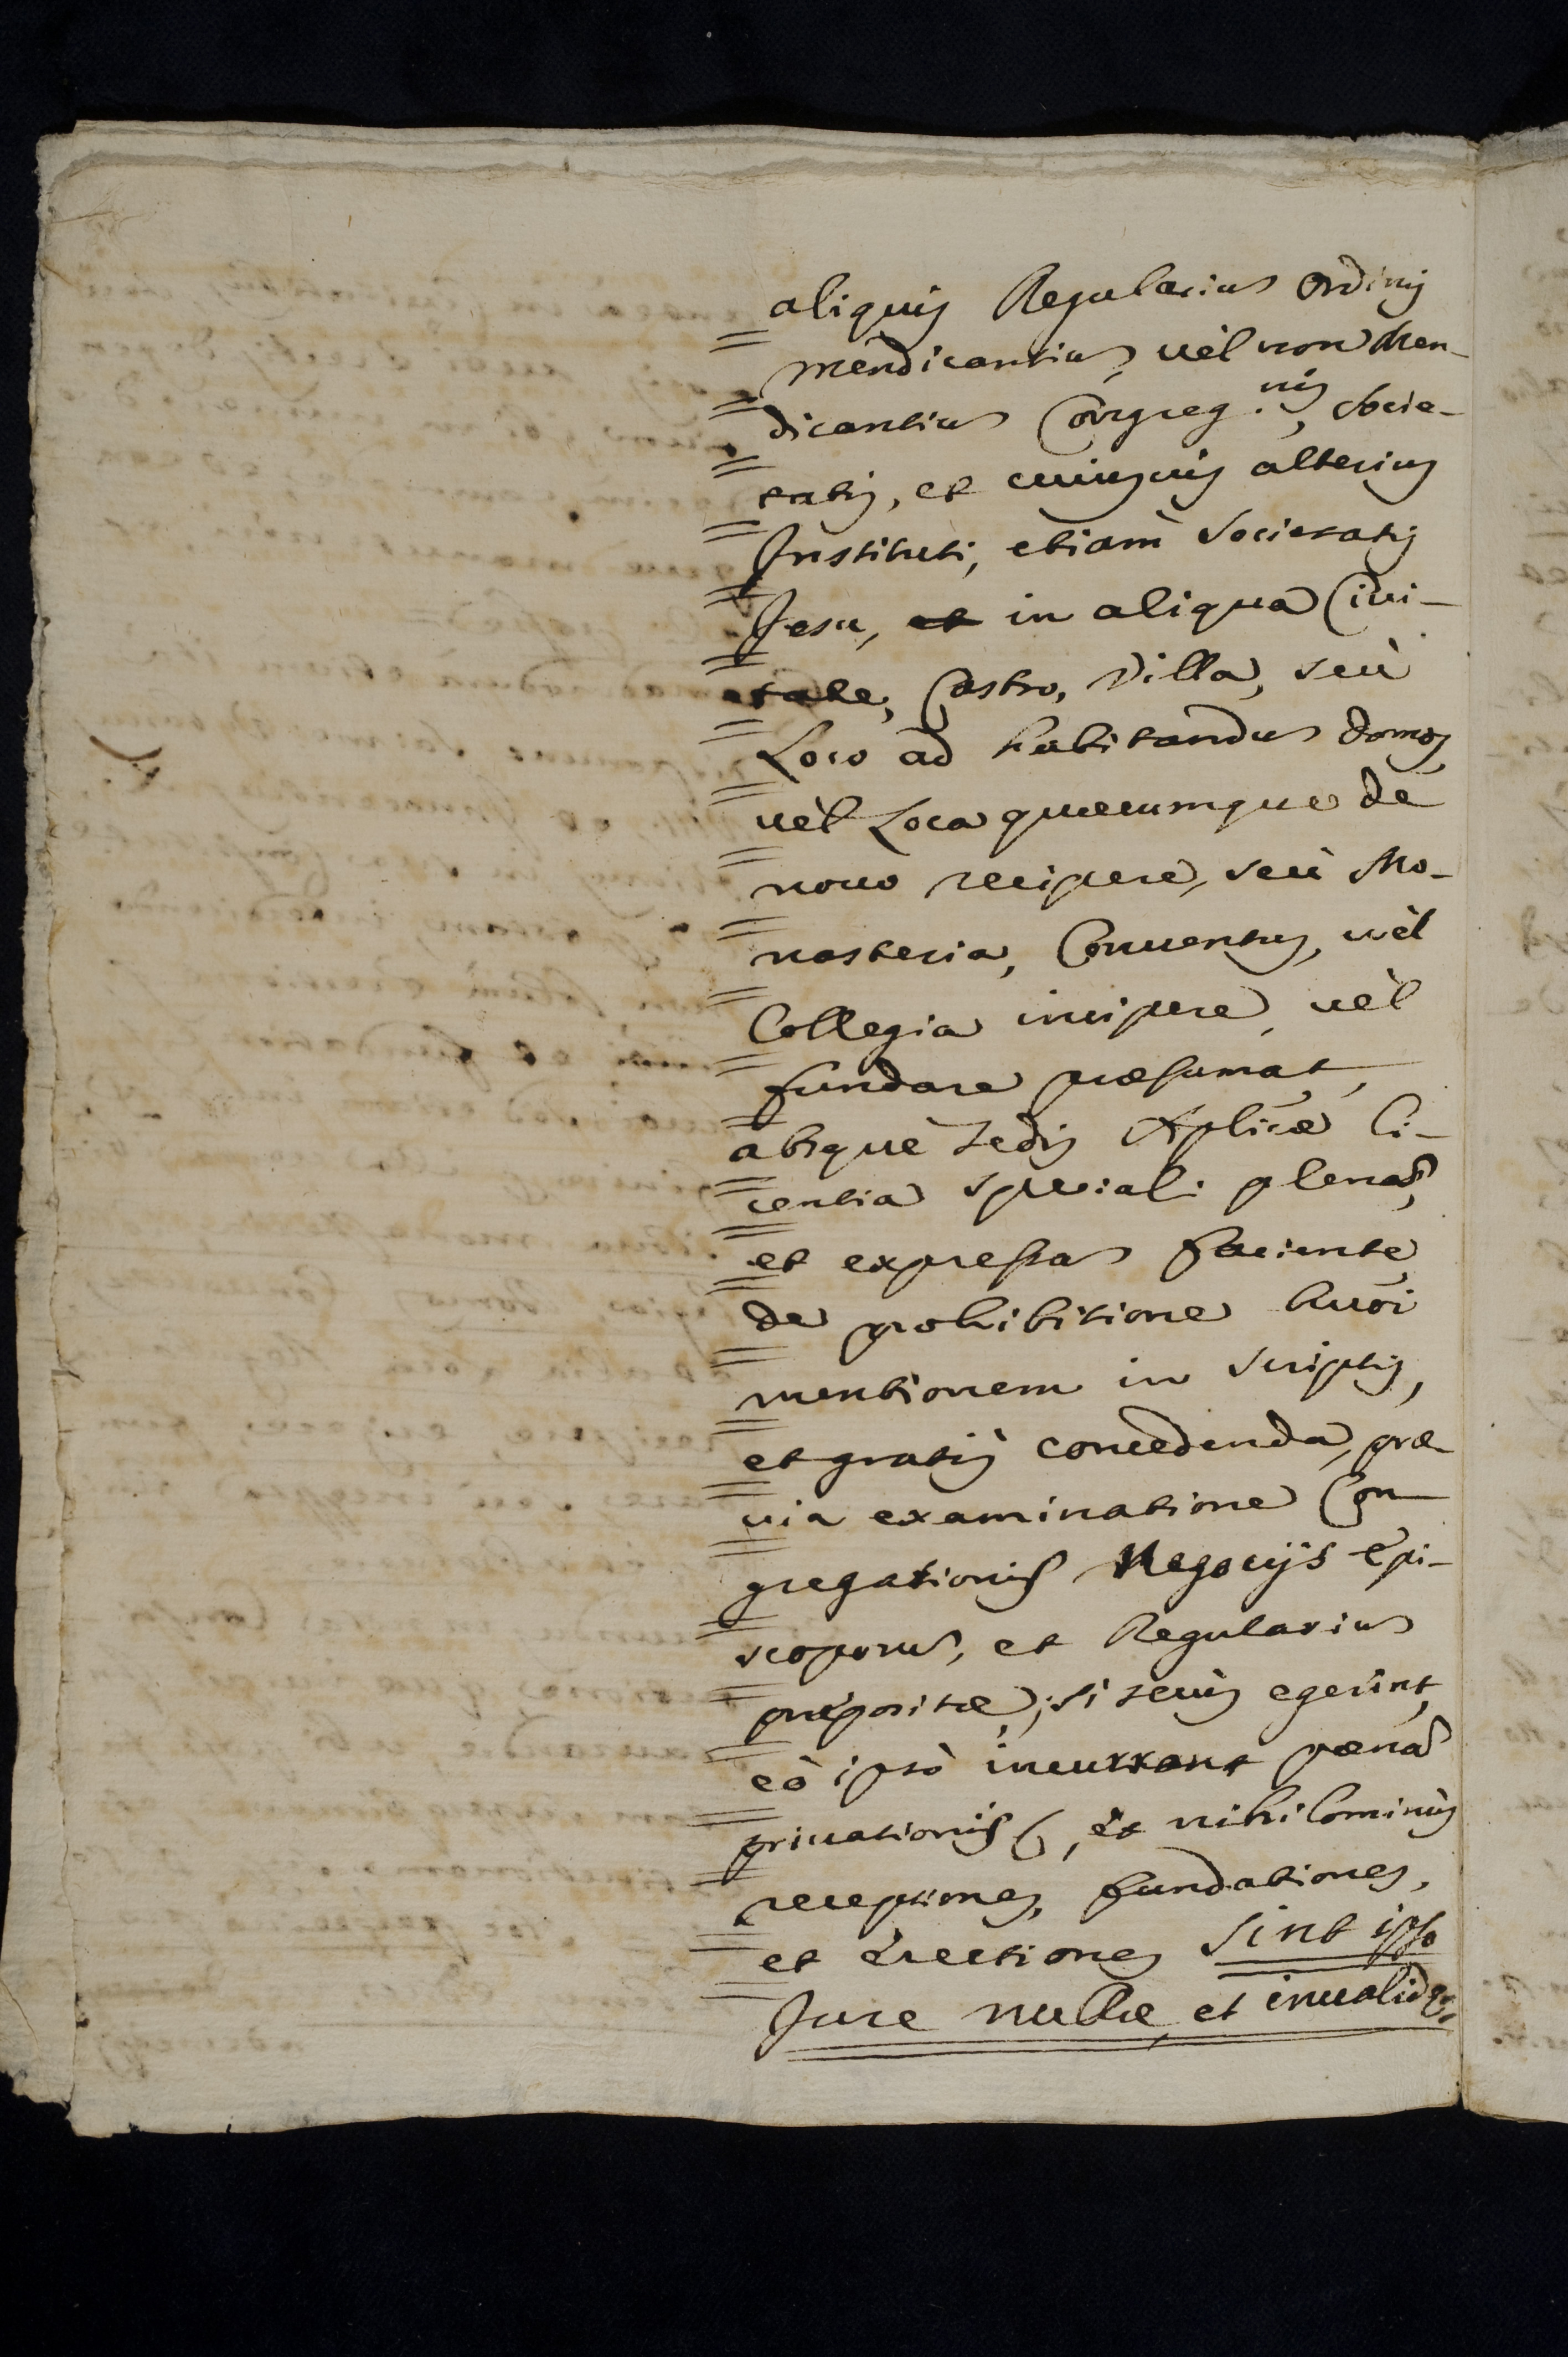 aliquis Regularium Ordinis
mendicantium, uèl non Men-
dicantium Congreg.nis, Socie-
tatis, et cuiusuis alterius
Instituti, etiam Societatis
Jesu, et in aliqua Ciui-
tate, Castro, Villa, seù
Loco ad habitandum domos,
uèl Loca quaecumque de
nouo recipere, seù Mo-
nasteria, Conuentus, uèl
Collegia incipere, uèl
fundare praesumat,
absque Sedis Aplicae li-
centia speciali plenam,
et expressam faciente
de prohibitione huõi
mentionem in scriptis,
et gratis concedenda, prae-
uia examinatione Con-
gregationis Negocijs Epi-
scoporum, et Regularium
praepositae; si secus egerint,
eò ipsò incurrant poenam
priuationis &, et nihilominus
receptiones, fundationes,
et erectiones sint ipso
Jure nullae, et inualidae.